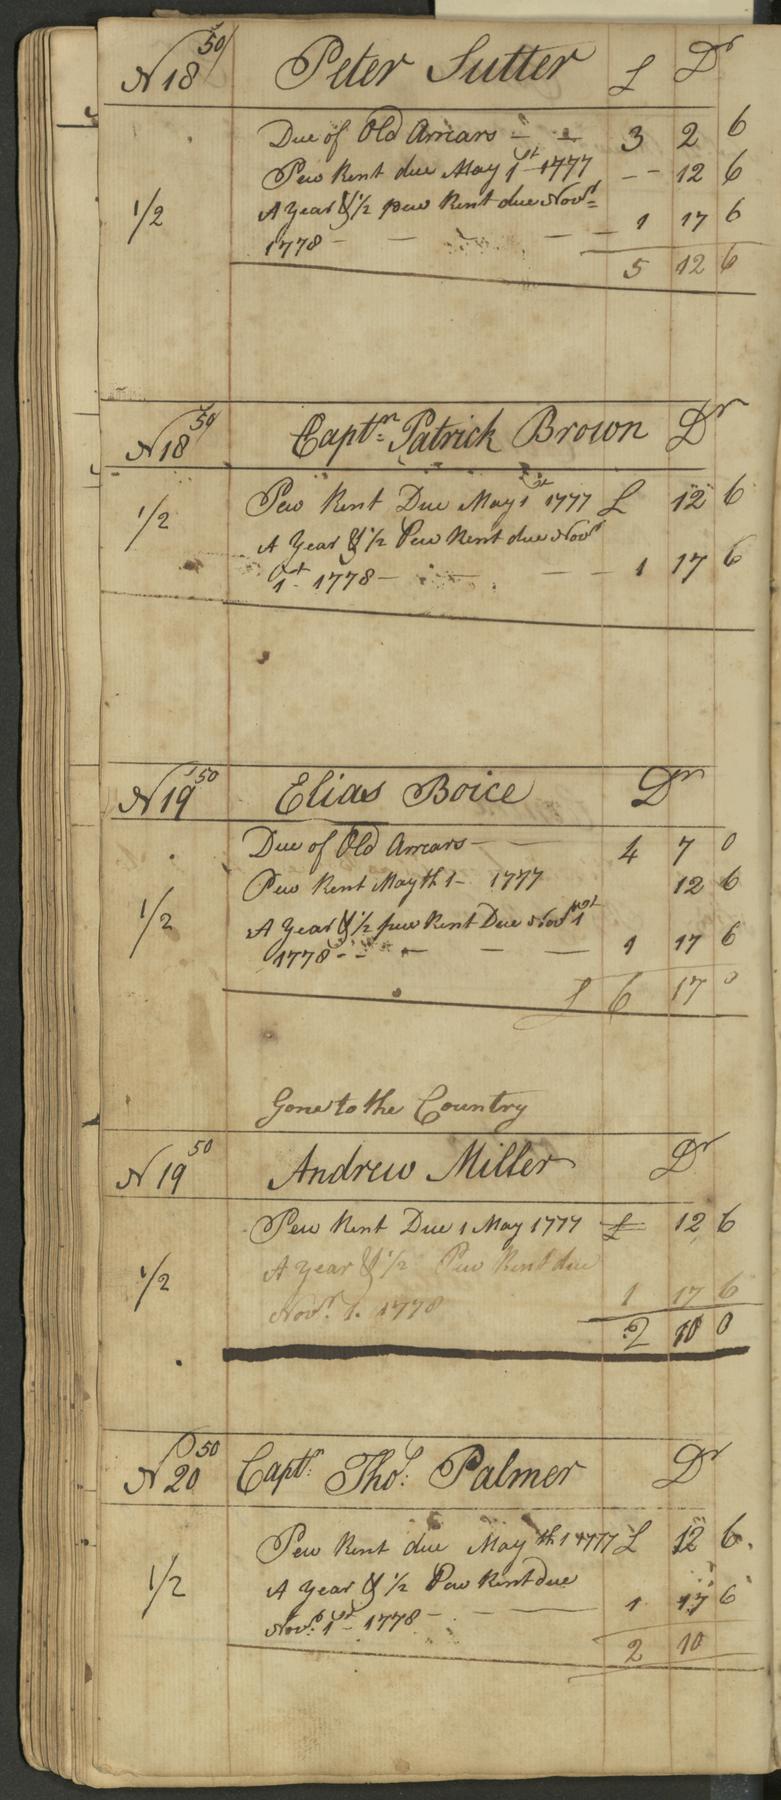 N 18 50/ Peter Sutter £ Dr
Due of Old Arrears - - 3 2 6
Pew Rent due May 1st 1777 - - 12 6
1/2 A Year & 1/2 pew Rent due Novr
1778 - - - - 1 17 6
5 12 6
N 18 50/ Captn Patrick Brown Dr
1/2 Pew Rent Due May 1st 1777 £ 12 6
A Year & 1/2 Pew Rent due Novr
1st 1778 - - - - 1 17 6
N 19 50 Elias Boice Dr
Due of Old Arrears - - 4 7 0
Pew Rent May th 1 - 1777 12 6
1/2 A Year & 1/2 pew Rent Due Novr 1st
1778 - - - - - 1 17 6
£ 6 17 0
Gone to the Country
N 19 50 Andrew Miller Dr
Pew Rent Due 1 May 1777 £ 12 6
1/2 A Year & 1/2 Pew Rent due
Novr. 1. 1778 1 17 6
2 10 0
N 20 50 Captn: Thos: Palmer Dr
Pew Rent due May th 1 1777 £ 12 6.
1/2 A Year & 1/2 Pew Rent due
Novr: 1st 1778 - - - 1 17 6
2 10